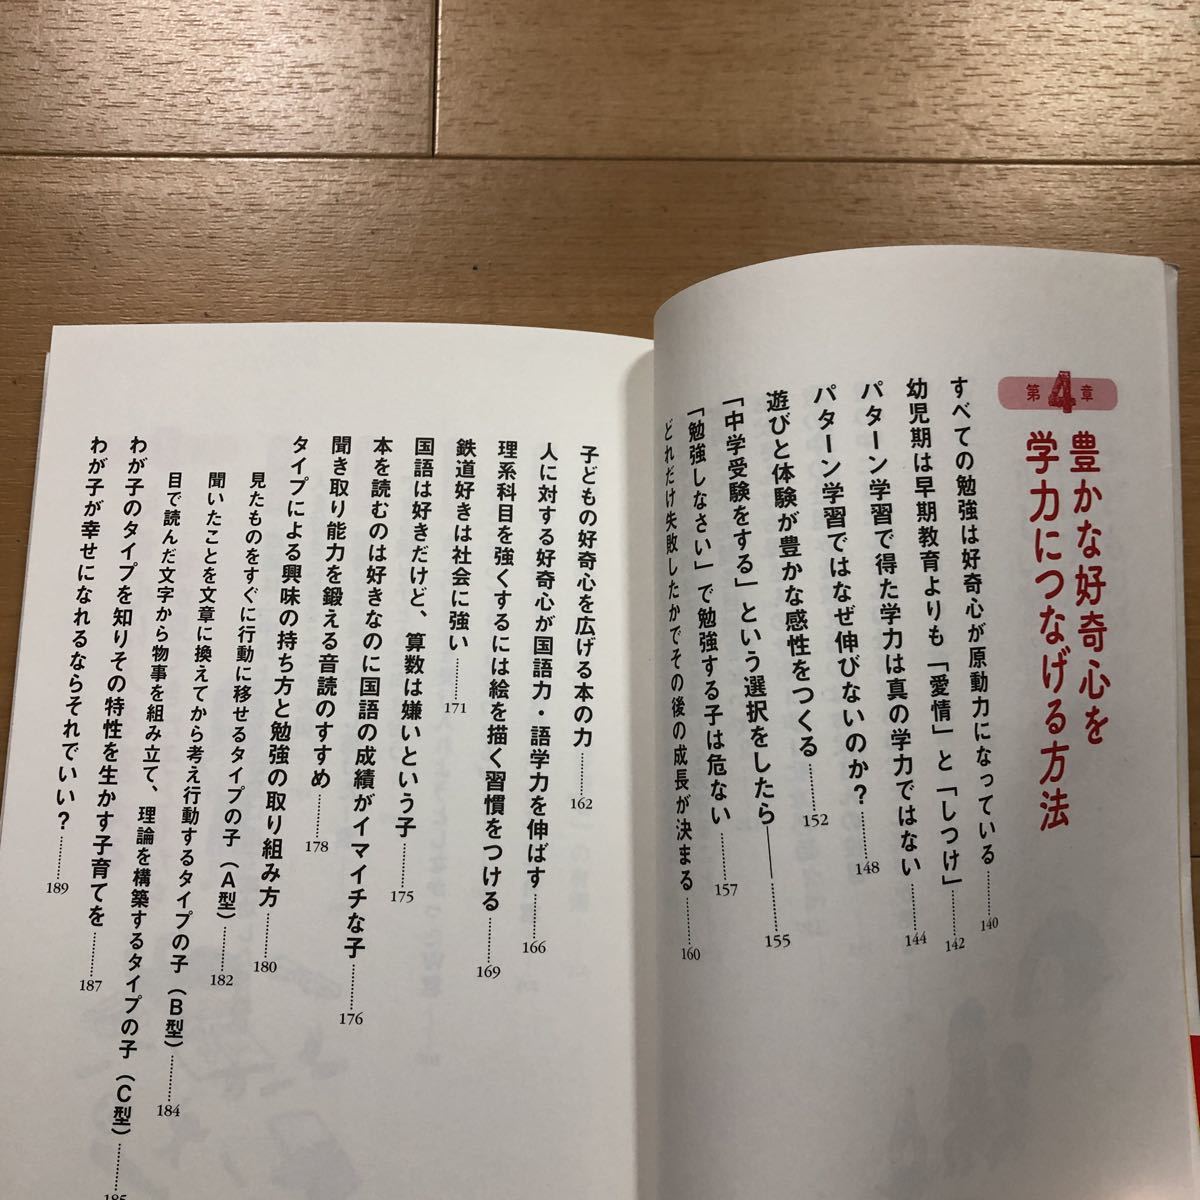 第4章
豊かな好奇心を
学力につなげる方法
すべての勉強は好奇心が原動力になっている………140
幼児期は早期教育よりも「愛情」と「しつけ」………142
パターン学習で得た学力は真の学力ではない………144
パターン学習ではなぜ伸びないのか？………148
遊びと体験が豊かな感性をつくる………152
「中学受験をする」という選択をしたら――155
「勉強しなさい」で勉強する子は危ない………157
どれだけ失敗したかでその後の成長が決まる………160
子どもの好奇心を広げる本の力………162
人に対する好奇心が国語力・語学力を伸ばす………166
理系科目を強くするには絵を描く習慣をつける………169
鉄道好きは社会に強い………171
国語は好きだけど、算数は嫌いという子………175
本を読むのは好きなのに国語の成績がイマイチな子………176
聞き取り能力を鍛える音読のすすめ………178
タイプによる興味の持ち方と勉強の取り組み方………180
見たものをすぐに行動に移せるタイプの子（A型）………182
聞いたことを文章に換えてから考え行動するタイプの子（B型）………184
目で読んだ文字から物事を組み立て、理論を構築するタイプの子（C型）………185
わが子のタイプを知りその特性を生かす子育てを………187
わが子が幸せになれるならそれでいい？………189